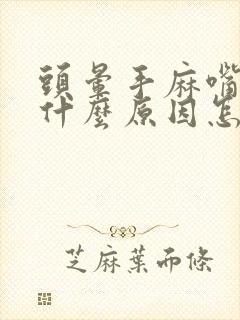 頭暈手麻嘴
什麼原因怎
芝麻葉而條